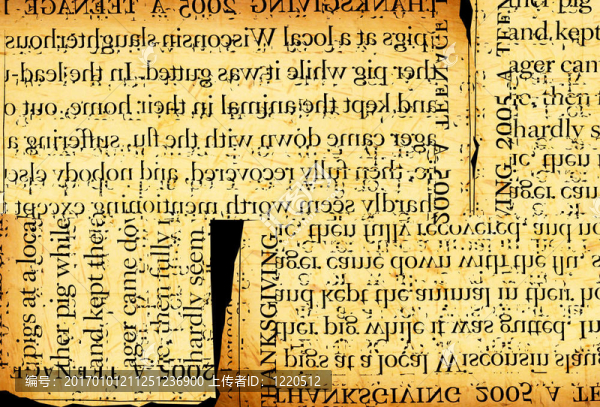 THANKSGIVING 2005 A TEENAGE
pigs at a local Wisconsin slaughterhous
ther pig while it was gutted. In the lead-u
and kept the animal in their home, out o
ager came down with the flu, suffering a
ic, then fully recovered, and nobody else
hardly seem worth mentioning except
2005 A TEENAGE
VING 2005 A TEEN
and kept
ager cam
ic, then f
hardly s
ic, then
ager cam
pigs at a local
ther pig while
and kept the a
ager came dow
ic, then fully r
hardly seem
THANKSGIVING
ic, then fully recovered, and no
ager came down with the flu, s
and kept the animal in their ho
ther pig while it was gutted. In
pigs at a local Wisconsin slaug
THANKSGIVING 2005 A TE
编号：20170101211251236900 上传者ID：1220512